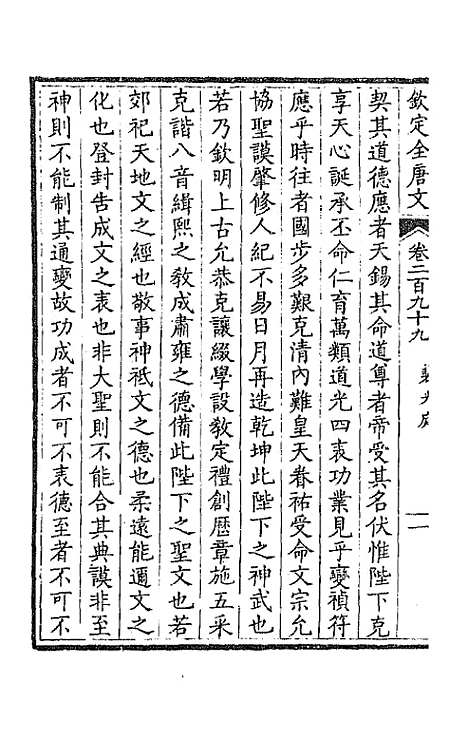 欽定全唐文 卷二百九十九 裴光庭 一
契其道德應者天錫其命道尊者帝受其名伏惟陛下克
享天心誕承丕命仁育萬類道光四表功業見乎變禎符
應乎時往者國步多艱克清內難皇天眷祐受命文宗允
協聖謨肇修人紀不易日月再造乾坤此陛下之神武也
若乃欽明上古允恭克讓綴學設教定禮創歷章施五采
克諧八音緝熙之教成肅雍之德備此陛下之聖文也若
郊祀天地文之經也敬事神祇文之德也柔遠能邇文之
化也登封告成文之表也非大聖則不能合其典謨非至
神則不能制其通變故功成者不可不表德至者不可不